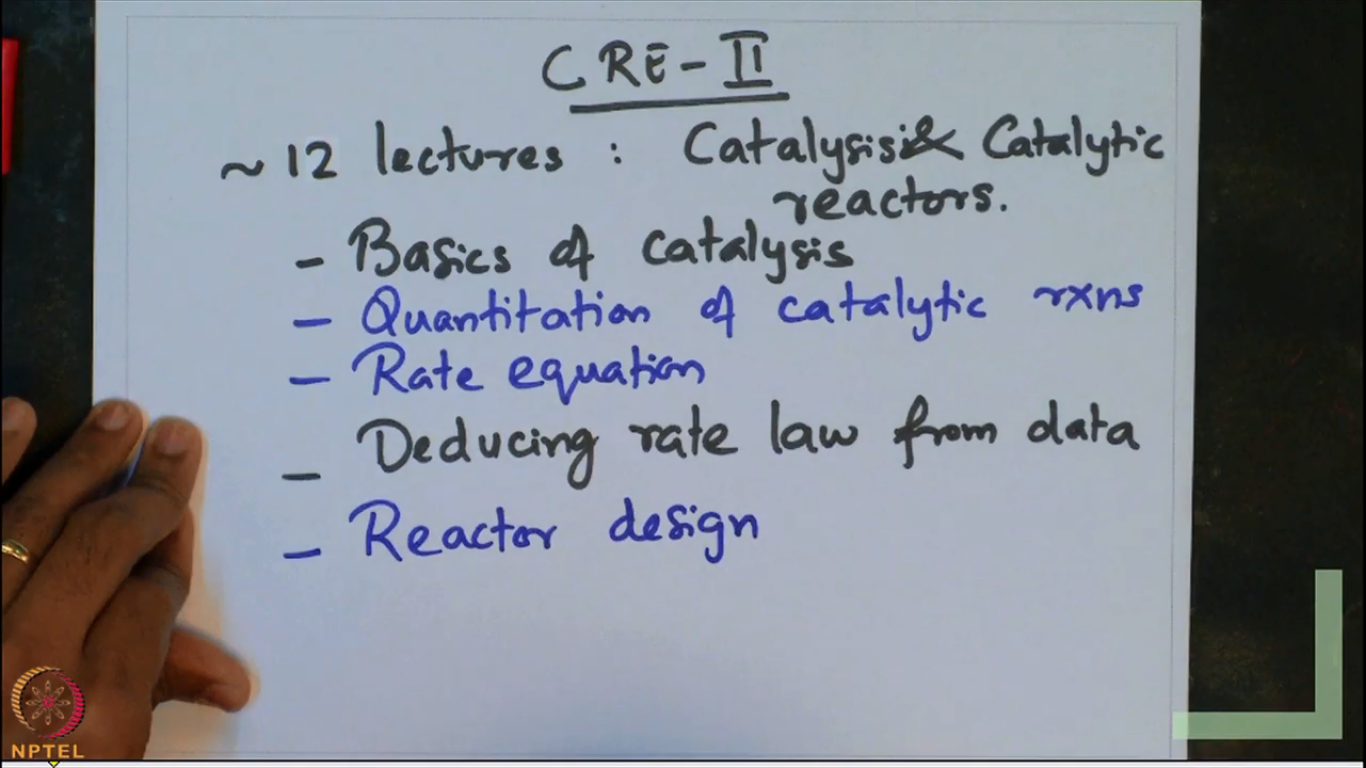 CRE-II
~12 lectures : Catalysis & Catalytic
reactors.
- Basics of catalysis
- Quantitation of catalytic rxns
- Rate equation
- Deducing rate law from data
- Reactor design
NPTEL